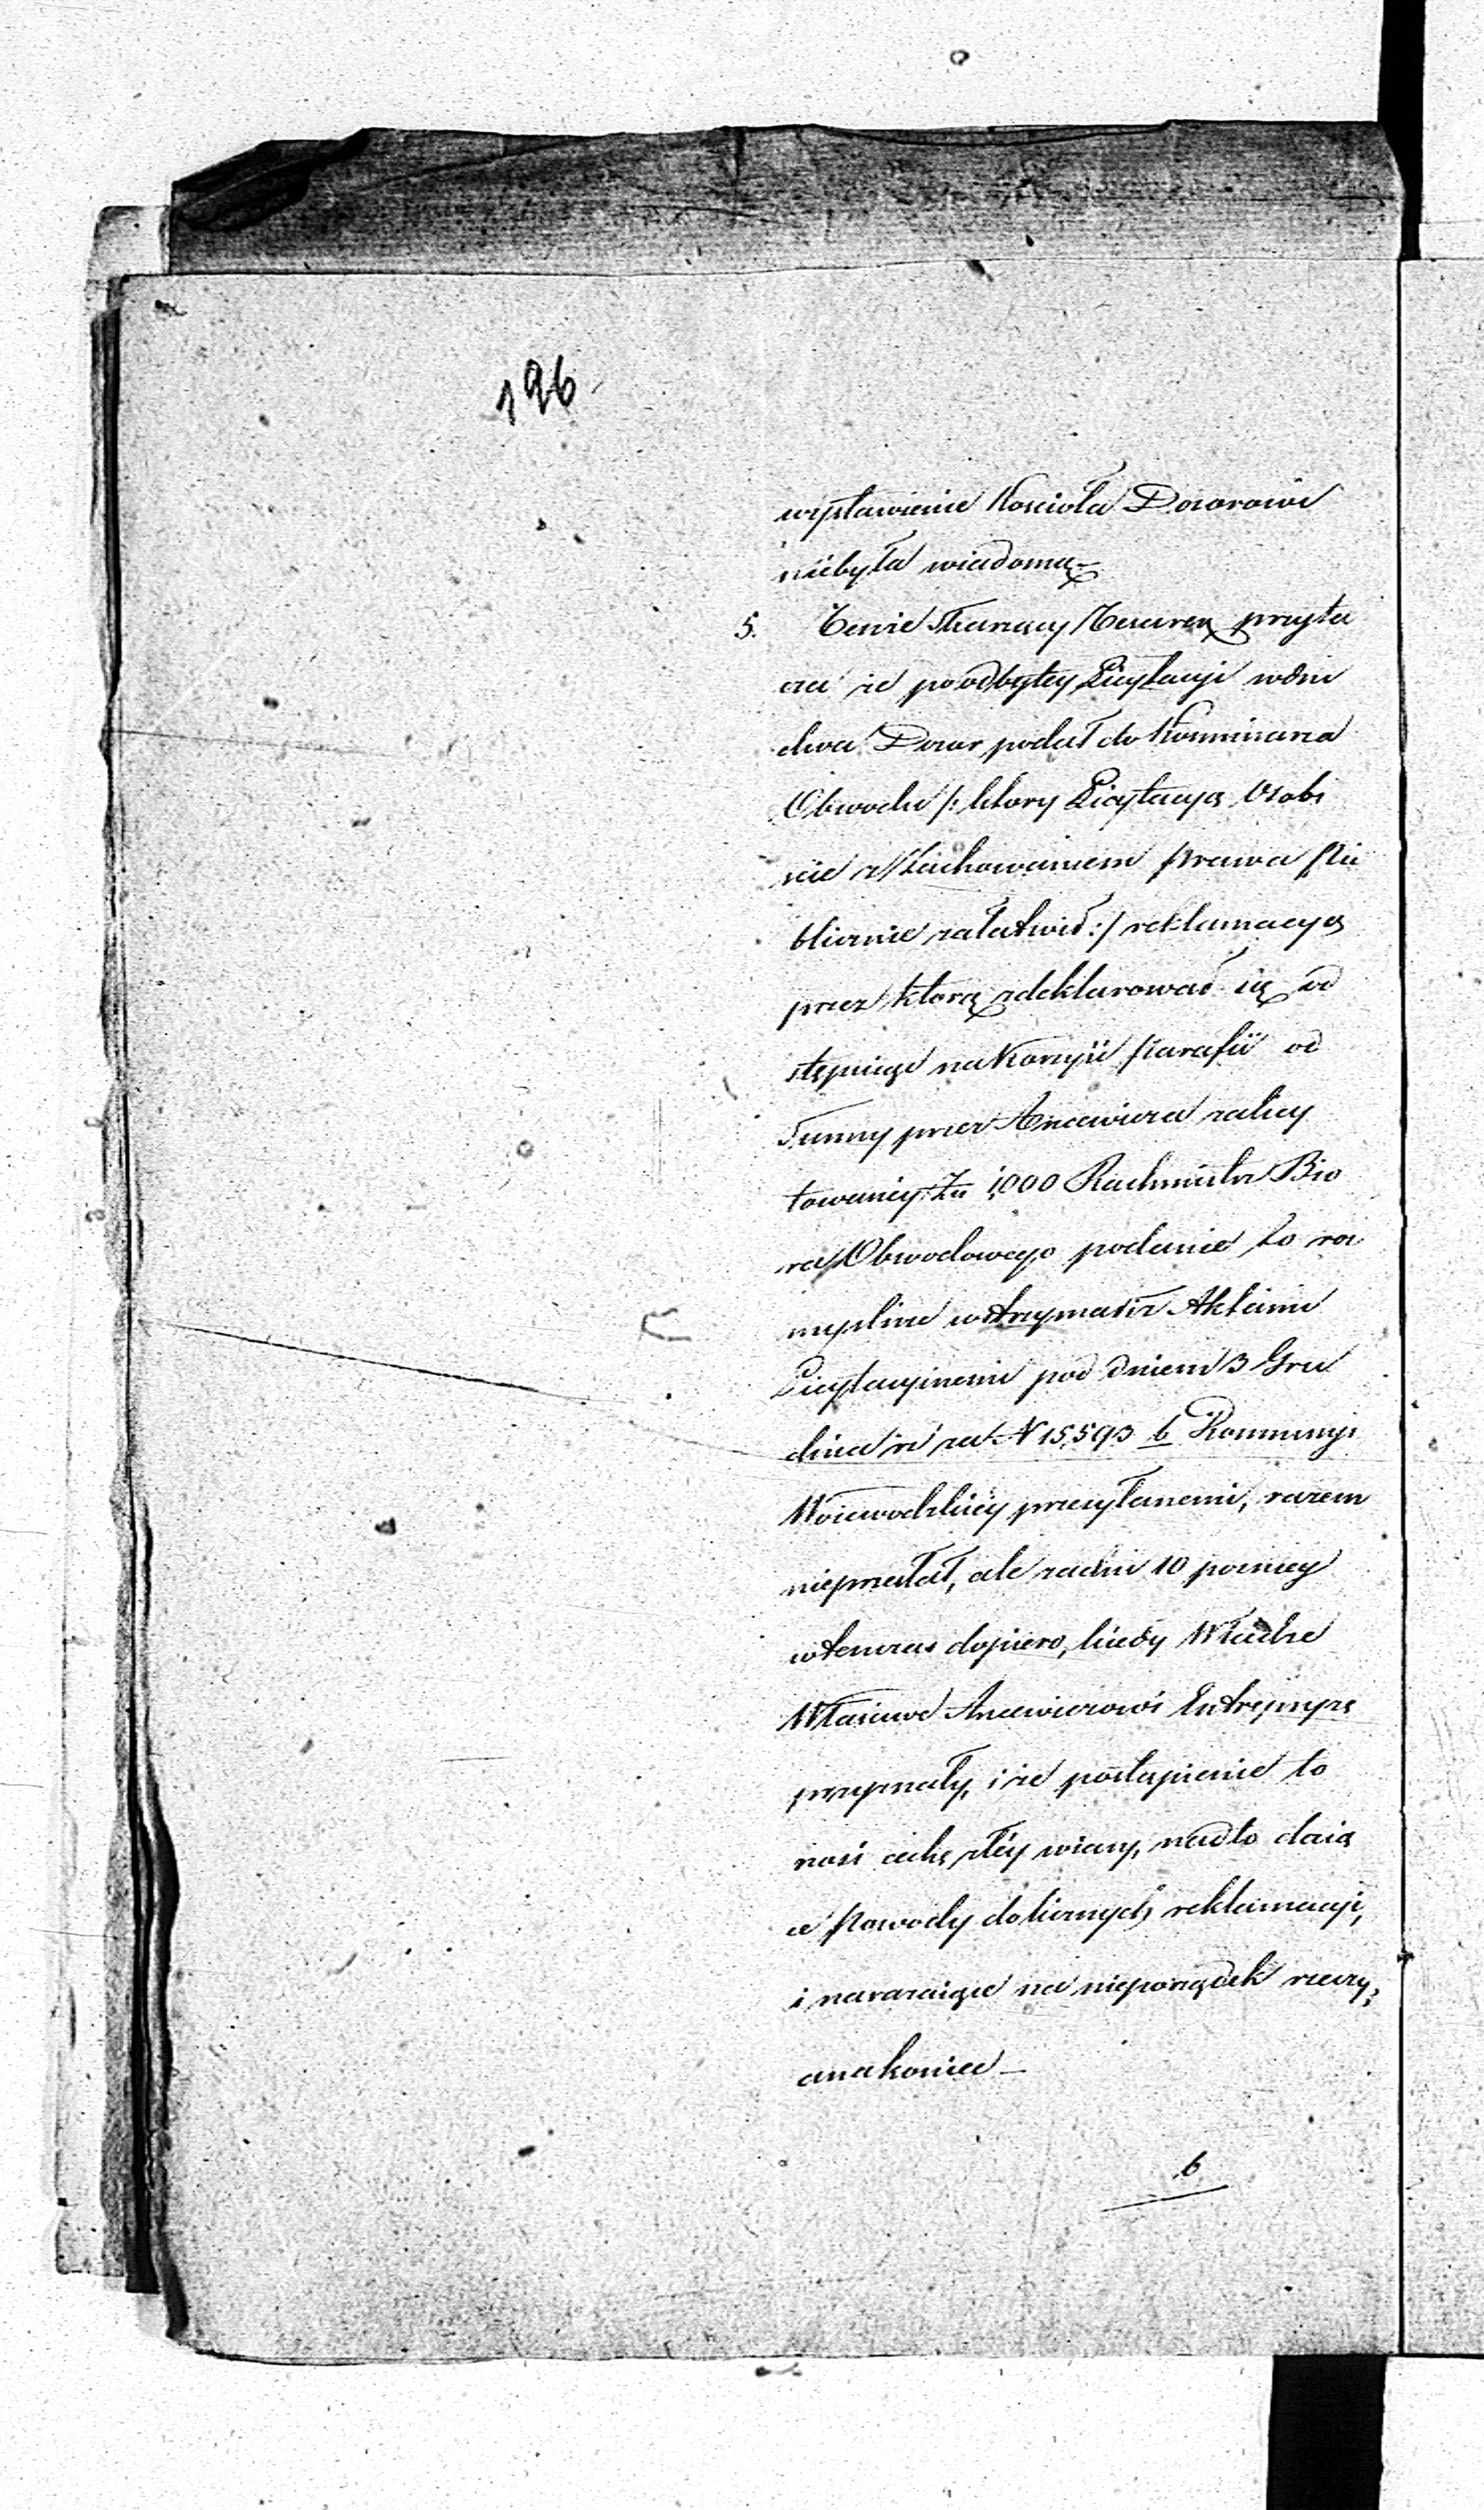 196
wystawienie Kościoła Dozorowi
niebyła wiadomą
5. Tenże Skarżący przyta
cza że po odbytey Licytacyi we dni
dwa Dozor podał do Kommissarza
Obwodu /: ktory Licytacyą Osobi
ście z Zachowaniem prawa Pu
blicznie załatwił :/ reklamacyą
przez ktorą zdeklarował się od
stępuiąc na Korzyść Parafii od
Summy przez zalicy
towaney Zł 1000 Rachmistrz Biu
ra Obwodowego podanie to roz
myślnie wstrzymał i z Aktami
Licytacyinemi pod dniem 3 Gru
dnia r. z. za N 15,593 b Kommissyi
Woiewodzkiey przesyłanemi, razem
nieprzesłał, ale za dni 10 pozniey
w tenczas dopiero, kiedy Władze
Właściwe Entrepryzę
przyznały, i że postąpienie to
nosi cechę złey wiary, nadto daią
ce Powody do licznych reklamacyi,
i narażaiące na nieporządek rzeczy;
a nakoniec —
6